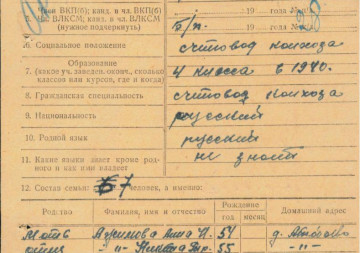 Чл. ВКП(б), канд. в чл. ВКП(б)
Чл. ВЛКСМ, канд. в чл. ВЛКСМ
(нужное подчеркнуть)
б/п.
19 года №
19 года №
6. Социальное положение счетовод колхоза
7. Образование
(какие уч. заведен. оконч., сколько
классов или курсов, где и когда)
4 класса в 1940.
8. Гражданская специальность счетовод колхоза
9. Национальность русский
10. Родной язык русский
11. Какие языки знает кроме род-
ного и как ими владеет
не знает
12. Состав семьи: 7 человек, а именно:
Родство Фамилия, имя и отчество Рождение Домашний адрес
год месяц
Мать Анна И. 54 д.
отец -"- 55 -"-